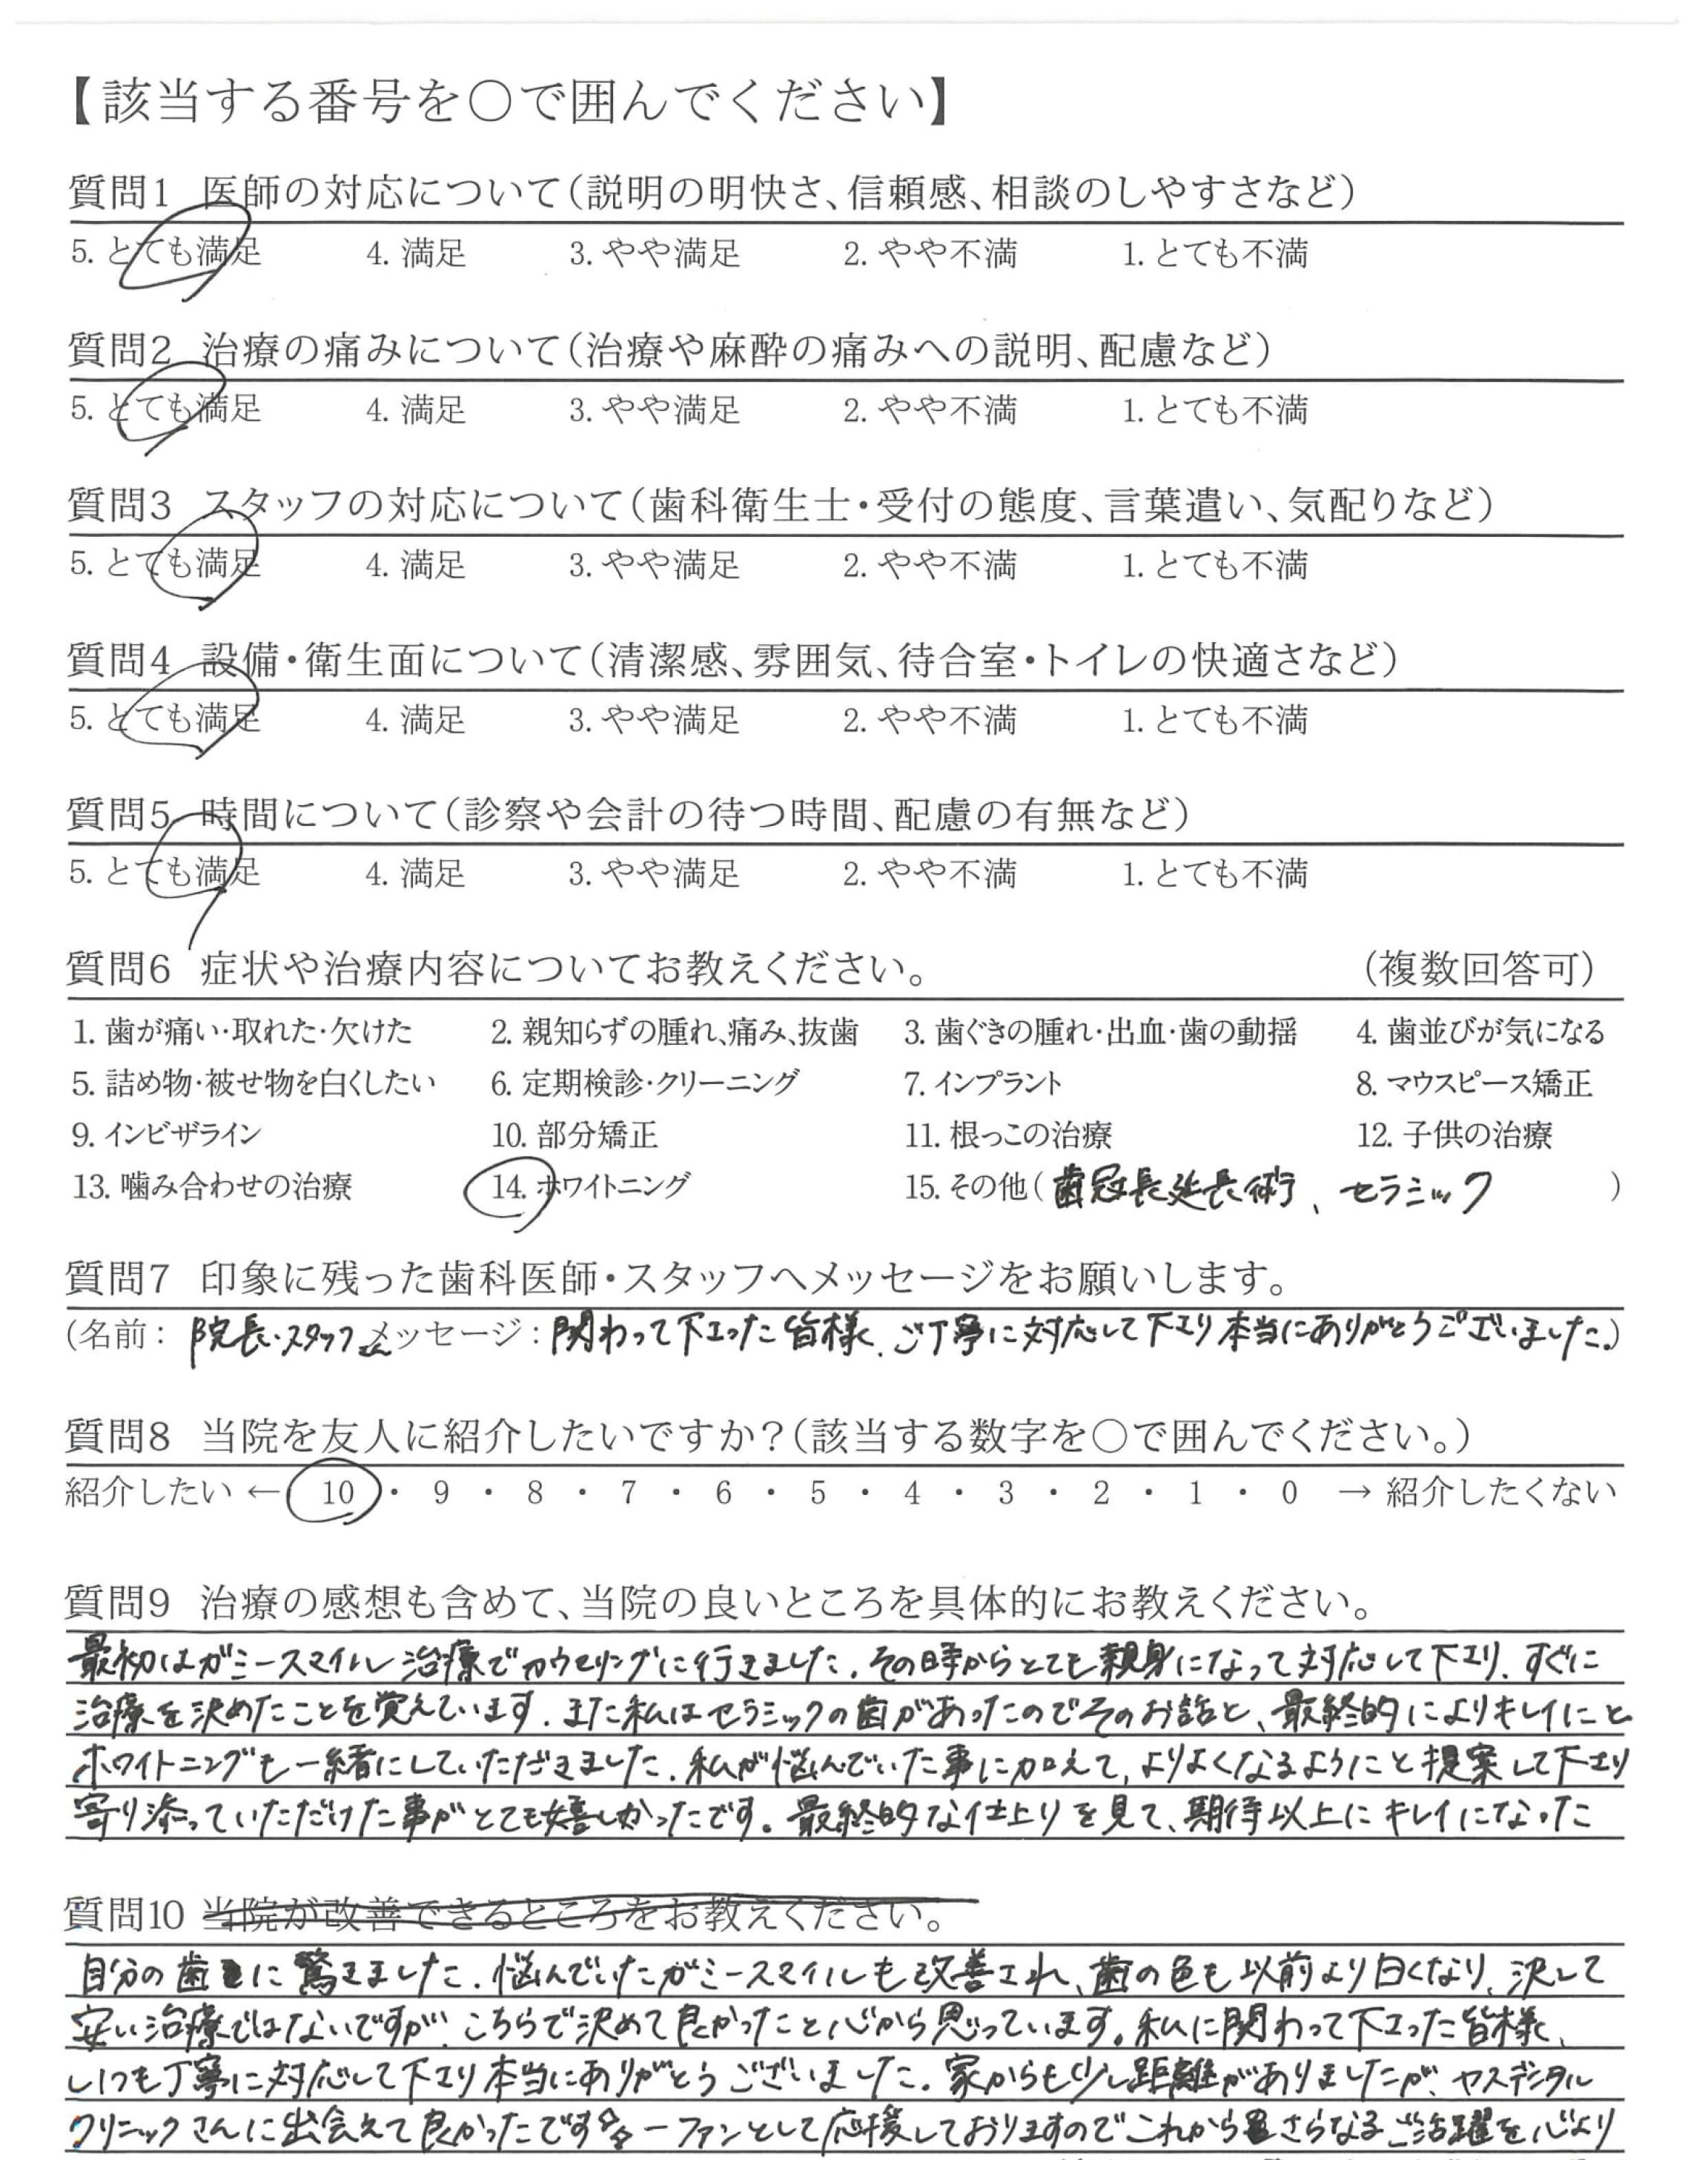 【該当する番号を〇で囲んでください】
質問1 医師の対応について(説明の明快さ、信頼感、相談のしやすさなど)
5. とても満足 4. 満足 3. やや満足 2. やや不満 1. とても不満
質問2 治療の痛みについて(治療や麻酔の痛みへの説明、配慮など)
5. とても満足 4. 満足 3. やや満足 2. やや不満 1. とても不満
質問3 スタッフの対応について(歯科衛生士・受付の態度、言葉遣い、気配りなど)
5. とても満足 4. 満足 3. やや満足 2. やや不満 1. とても不満
質問4 設備・衛生面について(清潔感、雰囲気、待合室・トイレの快適さなど)
5. とても満足 4. 満足 3. やや満足 2. やや不満 1. とても不満
質問5 時間について(診察や会計の待つ時間、配慮の有無など)
5. とても満足 4. 満足 3. やや満足 2. やや不満 1. とても不満
質問6 症状や治療内容についてお教えください。 (複数回答可)
1. 歯が痛い・取れた・欠けた 2. 親知らずの腫れ、痛み、抜歯 3. 歯ぐきの腫れ・出血・歯の動揺 4. 歯並びが気になる
5. 詰め物・被せ物を白くしたい 6. 定期検診・クリーニング 7. インプラント 8. マウスピース矯正
9. インビザライン 10. 部分矯正 11. 根っこの治療 12. 子供の治療
13. 噛み合わせの治療 14. ホワイトニング 15. その他(歯冠長延長術、セラミック)
質問7 印象に残った歯科医師・スタッフへメッセージをお願いします。
(名前: 院長・スタッフさん メッセージ:関わって下さった皆様、ご丁寧に対応して下さり本当にありがとうございました。)
質問8 当院を友人に紹介したいですか?(該当する数字を〇で囲んでください。)
紹介したい ← 10 ・ 9 ・ 8 ・ 7 ・ 6 ・ 5 ・ 4 ・ 3 ・ 2 ・ 1 ・ 0 → 紹介したくない
質問9 治療の感想も含めて、当院の良いところを具体的にお教えください。
最初はガミースマイル治療でカウセリングに行きました。その時からとても親身になって対応して下さり、すぐに
治療を決めたことを覚えています。また私はセラミックの歯があったのでそのお話と、最終的によりキレイにと
ホワイトニングも一緒にしていただきました。私が悩んでいた事に加えて、よりよくなるようにと提案して下さり
寄り添っていただけた事がとても嬉しかったです。最終的な仕上りを見て、期待以上にキレイになった
質問10 当院が改善できるところをお教えください。
自分の歯に驚きました。悩んでいたガミースマイルも改善され、歯の色も以前より白くなり、決して
安い治療ではないですが、こちらで決めて良かったこと心から思っています。私に関わって下さった皆様、
いつも丁寧に対応して下さり本当にありがとうございました。家からも少し距離がありましたが、ヤスデンタル
クリニックさんに出会えて良かったです☆☆一ファンとして応援しておりますのでこれからさらなるご活躍を心より